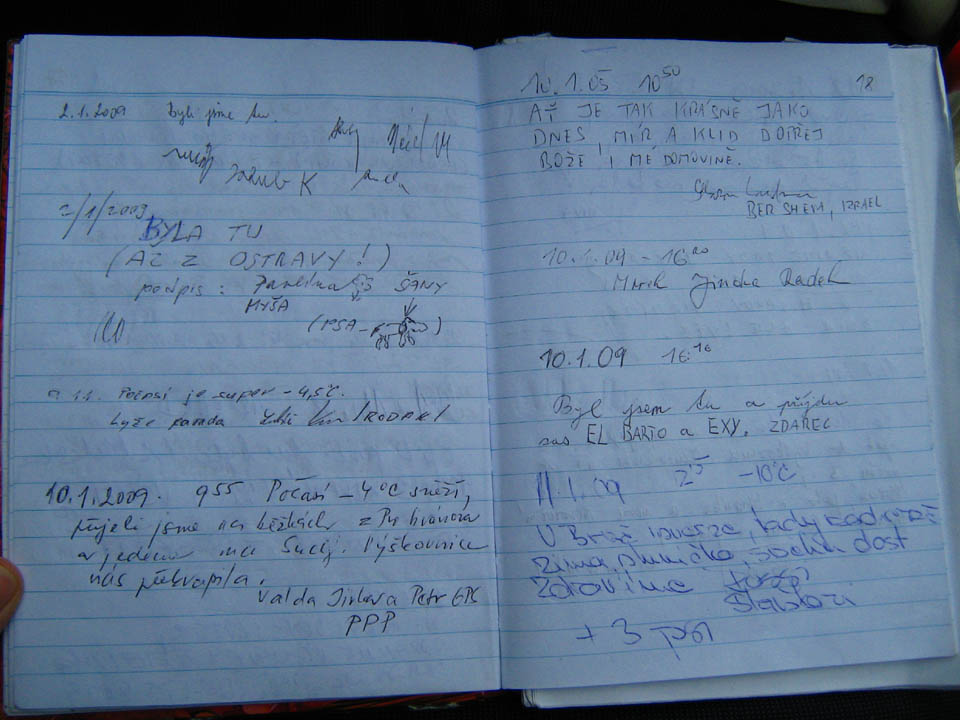 2.1.2009 Byli jsme tu.
Jakub K
2/1/2009
BYLA TU
(AŽ Z OSTRAVY!)
podpis: Pavlína ŠANY
MYŠA
(PSA - )
Počasí je super - 4,5°C.
lyže paráda
10.1.2009. 955 Počasí - 4°C sněží,
přijeli jsme na běžkách z
a jedeme na Suchý. Výškovnice
nás překvapila.
Valda Petr
PPP
18
10.1.05 10 50
AŤ JE TAK KRÁSNĚ JAKO
DNES, MÍR A KLID DOPŘEJ
BOŽE, I MÉ DOMOVINĚ.
BER SHEVA, IZRAEL
10.1.09 - 16
Jindra Radek
10.1.09 16
Byl jsem tu a přijdu
zas EL BARTO a EXY. ZDAREC
11.1.09 -10°C
V Brně inverze, tady
zima, sluníčko, sněhu dost
Zdravíme
+ 3 psi